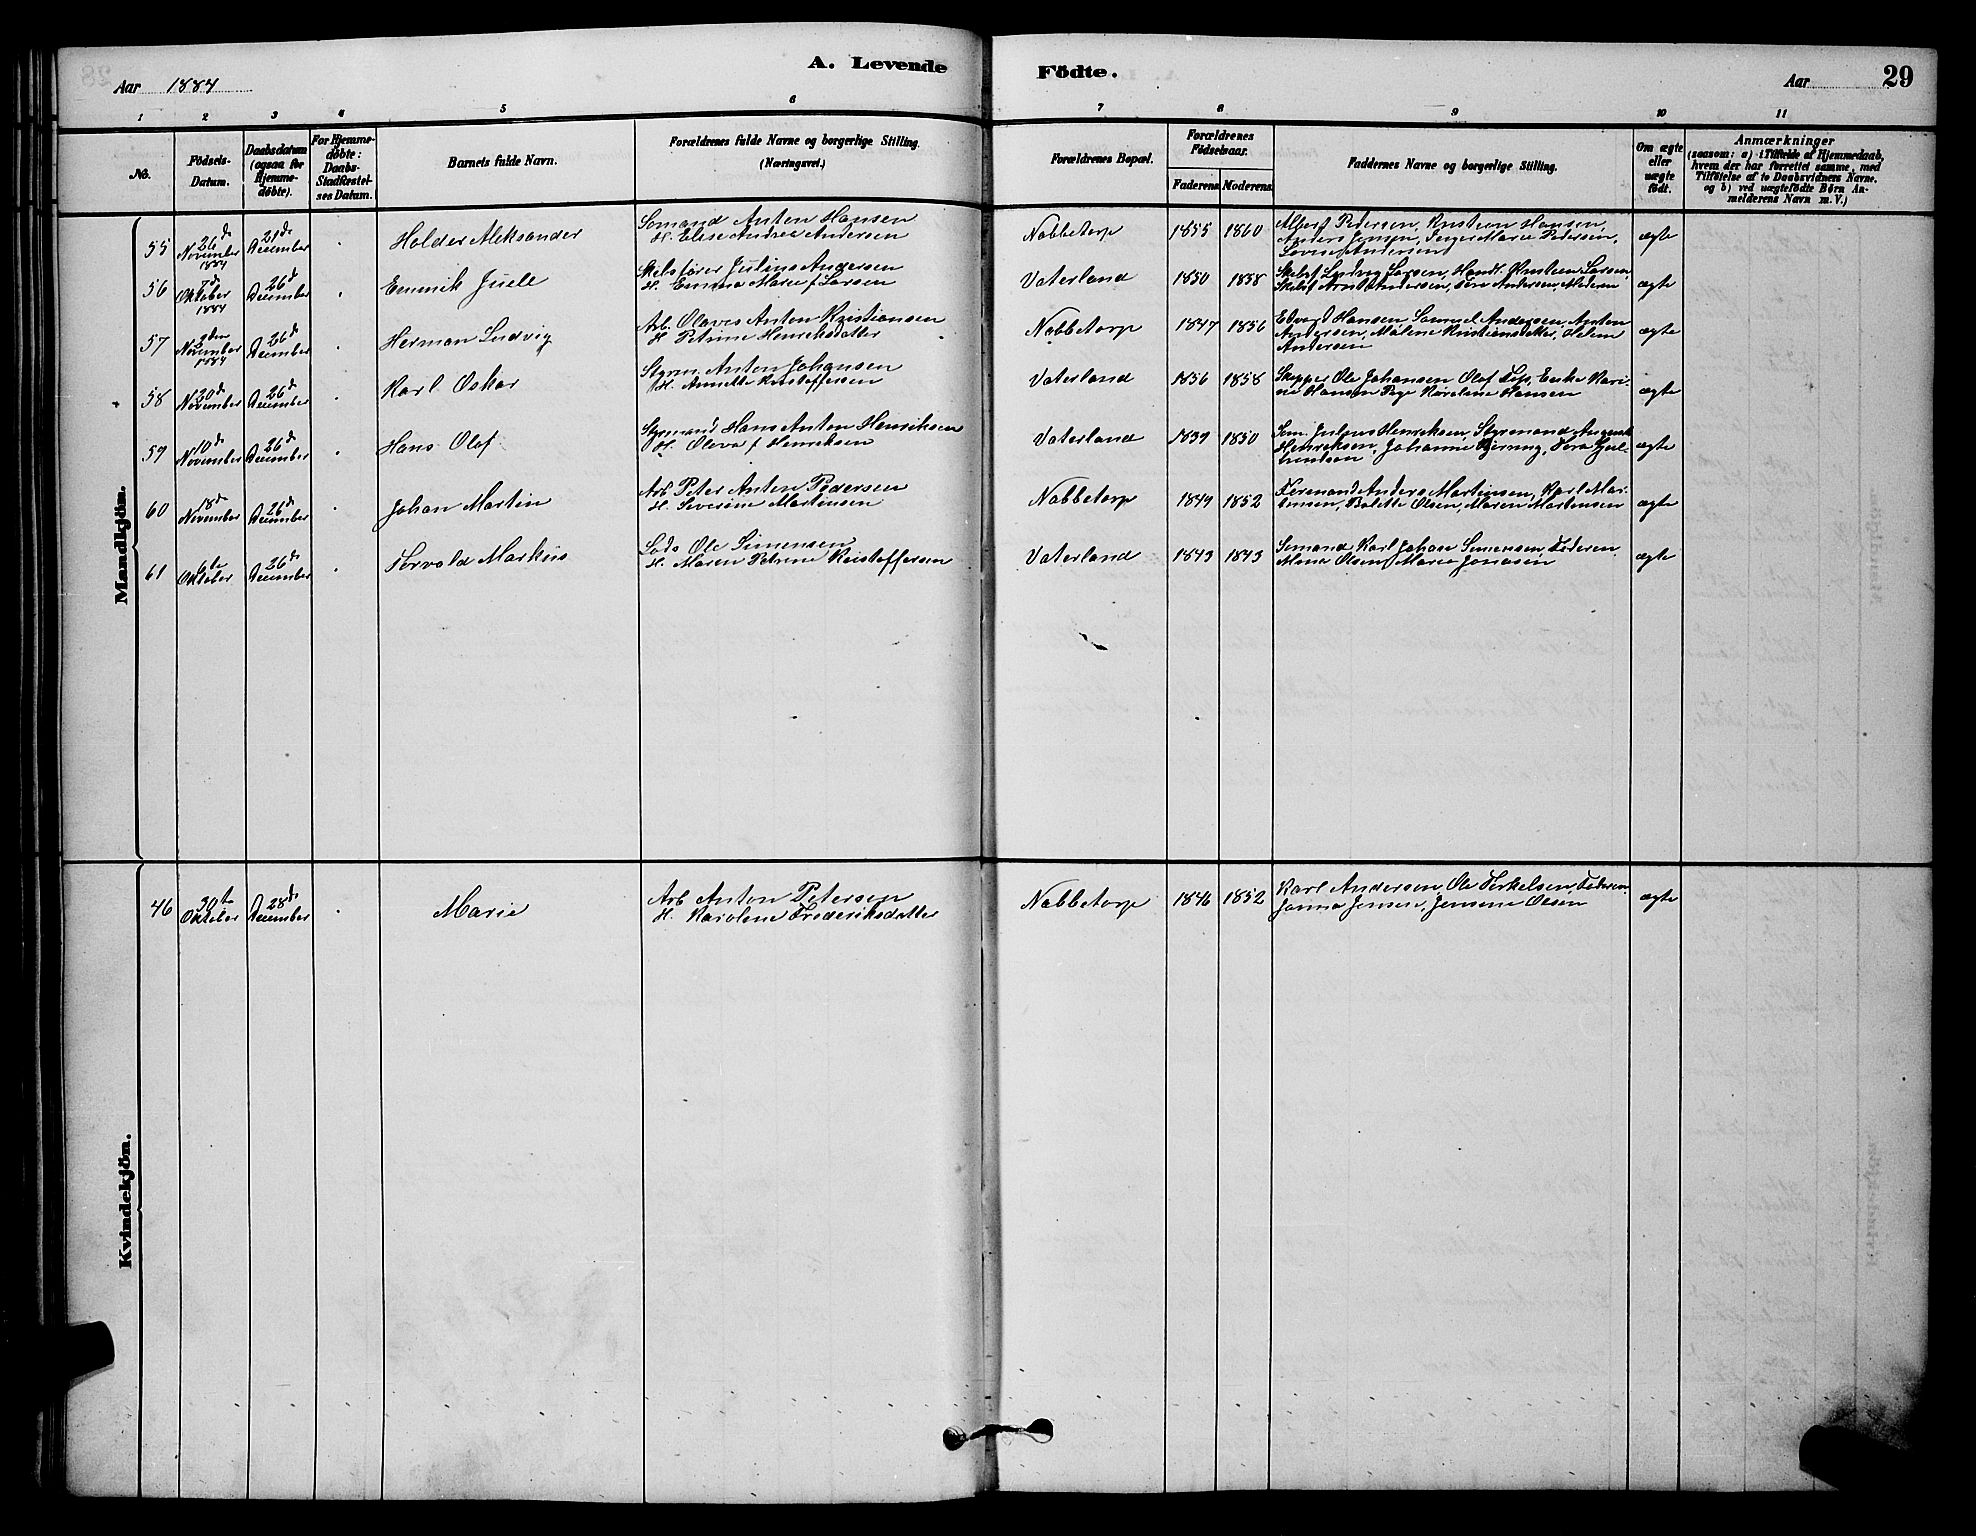 Aar 1884
A. Levende Födte.
Aar 29
1 2 3 4 5 6 7 8 9 10 11
No.
Födsels-Datum.
Daabsdatum (ogsaa for Hjemme-döbte).
For Hjemme-döbte: Daabs-Stadfæstelses Datum.
Barnets fulde Navn.
Forældrenes fulde Navne og borgerlige Stilling.
(Næringsvei.)
Forældrenes Bopæl.
Forældrenes Födselsaar.
Faderens Moderens
Faddernes Navne og borgerlige Stilling.
Om ægte eller uægte födt.
Anmærkninger
(saasom: a) i Tilfælde af Hjemmedaab,
hvem der har forrettet samme, med
Tilföielse af to Daabsvidners Navne.
og b) ved uægtefödte Börn An-
melderens Navn m. V.)
Mandkjön.
55 26de November 1884 21de December Holder Aleksander
Sömand Anton Hansen
H. Elise Andrea Andersen
Nabbetorp 1855 1860
Albert Pedersen, Kristian Hansen,
Anders Jensen, Inger Marie Pedersen,
Lovise Andersen
ægte
56 7de Oktober 1884 26de December Emmik Juele
Skibsfører Julius Andersen
H. Emma Marie f Larsen
Vaterland 1850 1858
Skibsf Ludvig Larsen, Handl. Kristian Larsen,
Skibsf Arnt Andersen, Andersen, Moderen
ægte
57 2den November 1884 26de December Herman Ludvig
Arb. Olaves Anton Kristiansen
H Petrine Henriksdatter
Nabbetorp 1847 1856
Edvard Hansen Samuel Andersen, Anton
Andersen, Malene Kristiansdatter,
Andersen
ægte
58 20de November 26de December Karl Oskar
Styrm. Anton Johansen
H. Annette Kristoffersen
Vaterland 1856 1858
Skipper Ole Johansen Olaf Enke Kari-
ne Hansen Pige Karoline Hansen
ægte
59 10de November 26de December Hans Olaf
Styrmand Hans Anton Henriksen
H. Oleva f Henriksen
Vaterland 1839 1850
Söm. Julius Henriksen, Styrmand August
Henriksen, Johanne
ægte
60 18de November 26de December Johan Martin
Arb Peter Anton Pedersen
H. Severine Martinsen
Nabbetorp 1849 1852
Ferdinand Anders Martinsen, Karl Mar-
tinsen, Bolette Olsen, Maren Martensen
ægte
61 6te Oktober 26de December Torvald Markus
Lods Ole Simensen
H. Maren Petrine Kristoffersen
Vaterland 1843 1843
Sömand Karl Johan Simensen, Faderen
Mina Olsen, Marie Jonasen
ægte
Kvindekjön.
46 30te Oktober 28de December Marie
Arb Anton Petersen
H. Karolene Frederiksdatter
Nabbetorp 1846 1852
Karl Andersen, Ole Terkelsen, Faderen
Janna Jensen, Jensine Olsen
ægte